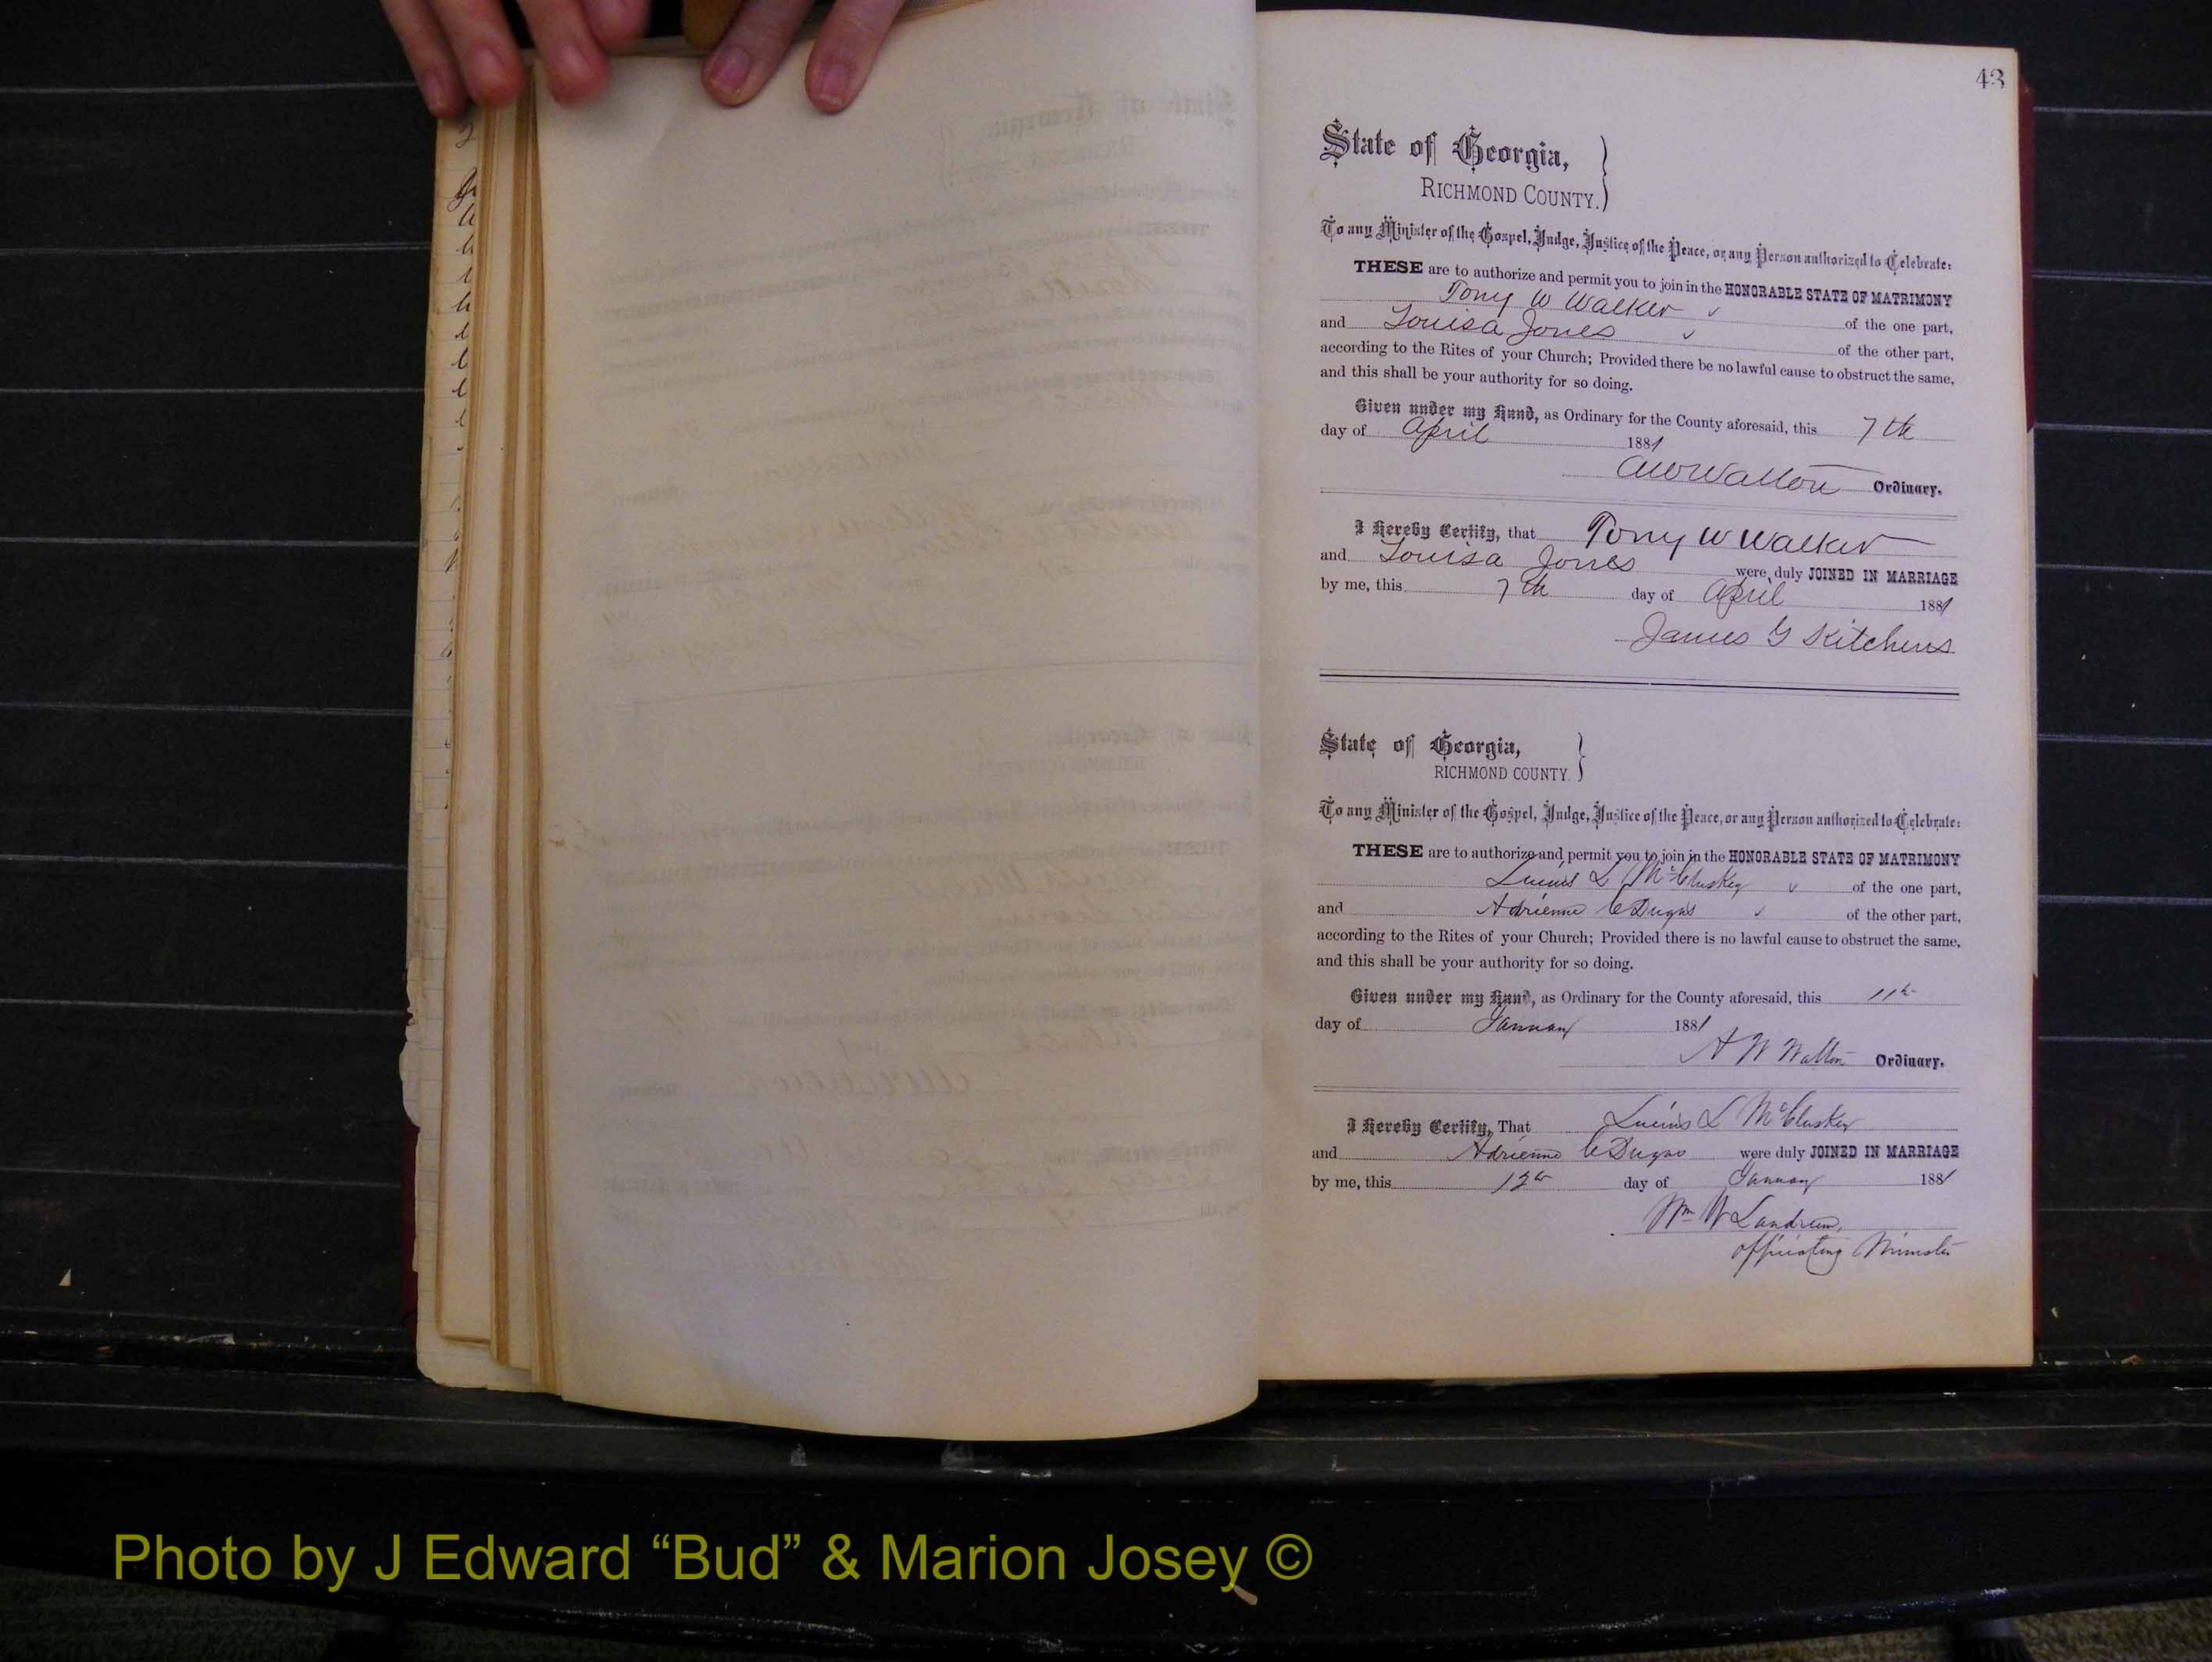 43
State of Georgia,
RICHMOND COUNTY.
To any Minister of the Gospel, Judge, Justice of the Peace, or any Person authorized to Celebrate:
THESE are to authorize and permit you to join in the HONORABLE STATE OF MATRIMONY
Tony W Walker of the one part,
and Louisa Jones of the other part,
according to the Rites of your Church; Provided there be no lawful cause to obstruct the same,
and this shall be your authority for so doing.
Given under my Hand, as Ordinary for the County aforesaid, this 7th
day of April 1881
A W Walton Ordinary.
I Hereby Certify, that Tony W Walker
and Louisa Jones were duly JOINED IN MARRIAGE
by me, this 7th day of April 1881
James G Kitchens
State of Georgia,
RICHMOND COUNTY.
To any Minister of the Gospel, Judge, Justice of the Peace, or any Person authorized to Celebrate:
THESE are to authorize and permit you to join in the HONORABLE STATE OF MATRIMONY
Lucius L McCluskey of the one part,
and Adrienne C Dugas of the other part,
according to the Rites of your Church; Provided there is no lawful cause to obstruct the same,
and this shall be your authority for so doing.
Given under my Hand, as Ordinary for the County aforesaid, this 11th
day of January 1881
A W Walton Ordinary.
I Hereby Certify, That Lucius L McCluskey
and Adrienne C Dugas were duly JOINED IN MARRIAGE
by me, this 12th day of January 1881
Wm W Landrum,
officiating Minister
Photo by J Edward “Bud” & Marion Josey ©